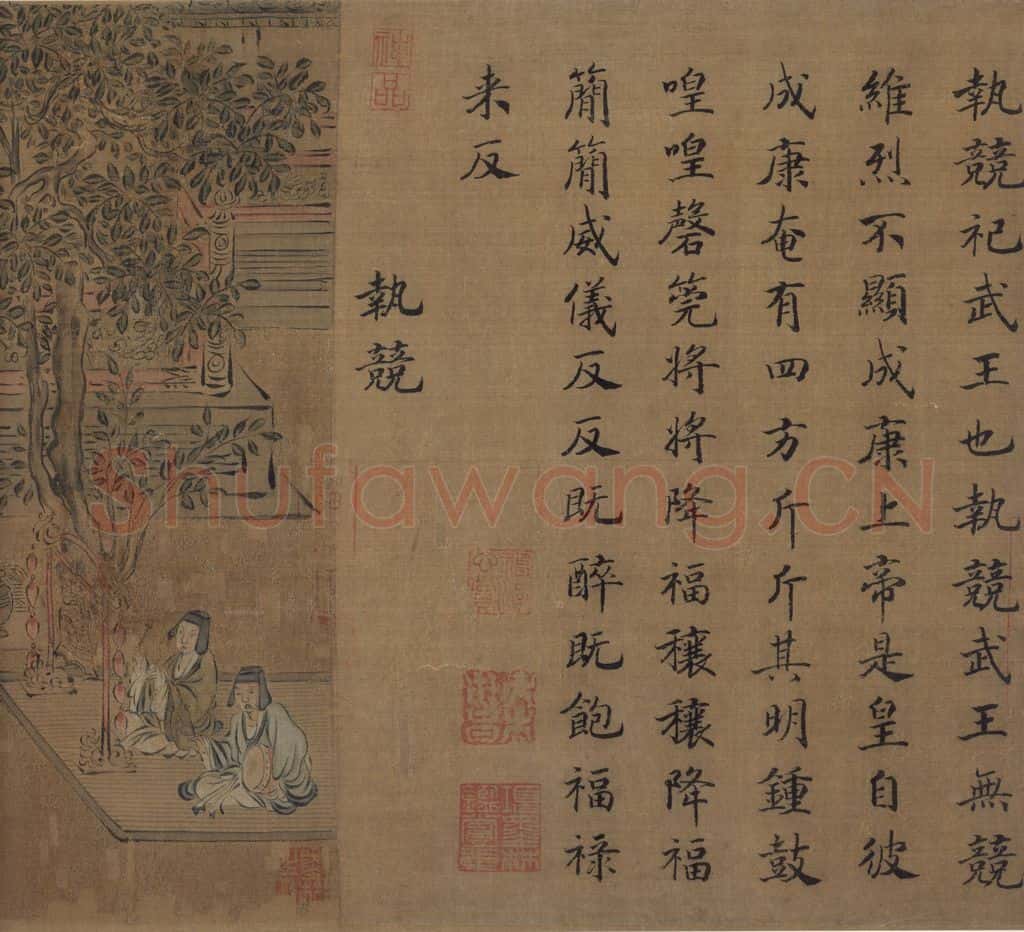 執競祀武王也執競武王無競
維烈不顯成康上帝是皇自彼
成康奄有四方斤斤其明鍾鼓
喤喤磬筦將將降福穰穰降福
簡簡威儀反反既醉既飽福禄
来反
執競
神品
Shufawang.CN